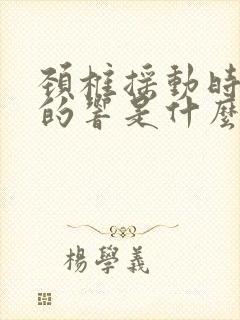 頚椎揺動時
的響是什麼
楊學義